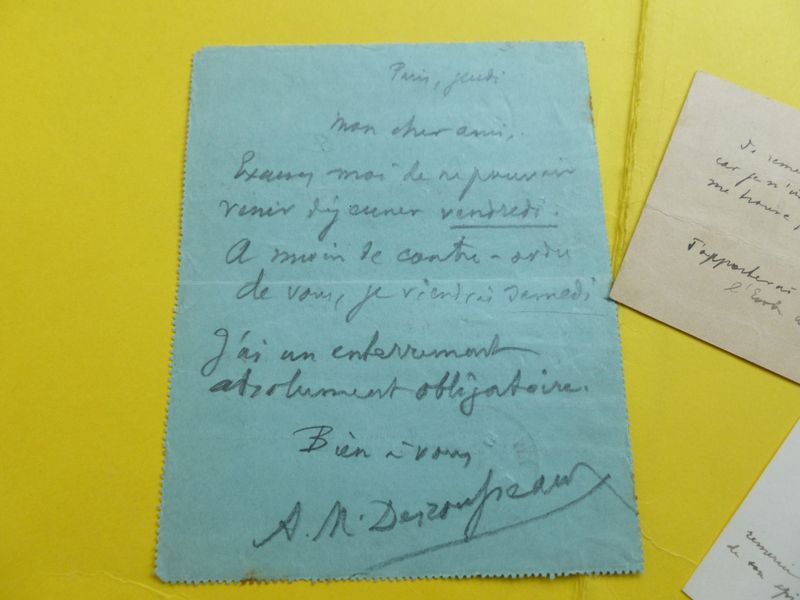 Paris, jeudi
Mon cher ami,
Excusez moi de ne pouvoir
venir déjeuner vendredi.
A moin de contre-ordre
de vous, je viendrai samedi
J'ai un enterrement
absolument obligatoire.
Bien à vous
A. M. Desrousseaux
car je n'
me trouve
J'apporterai
remercie
de son